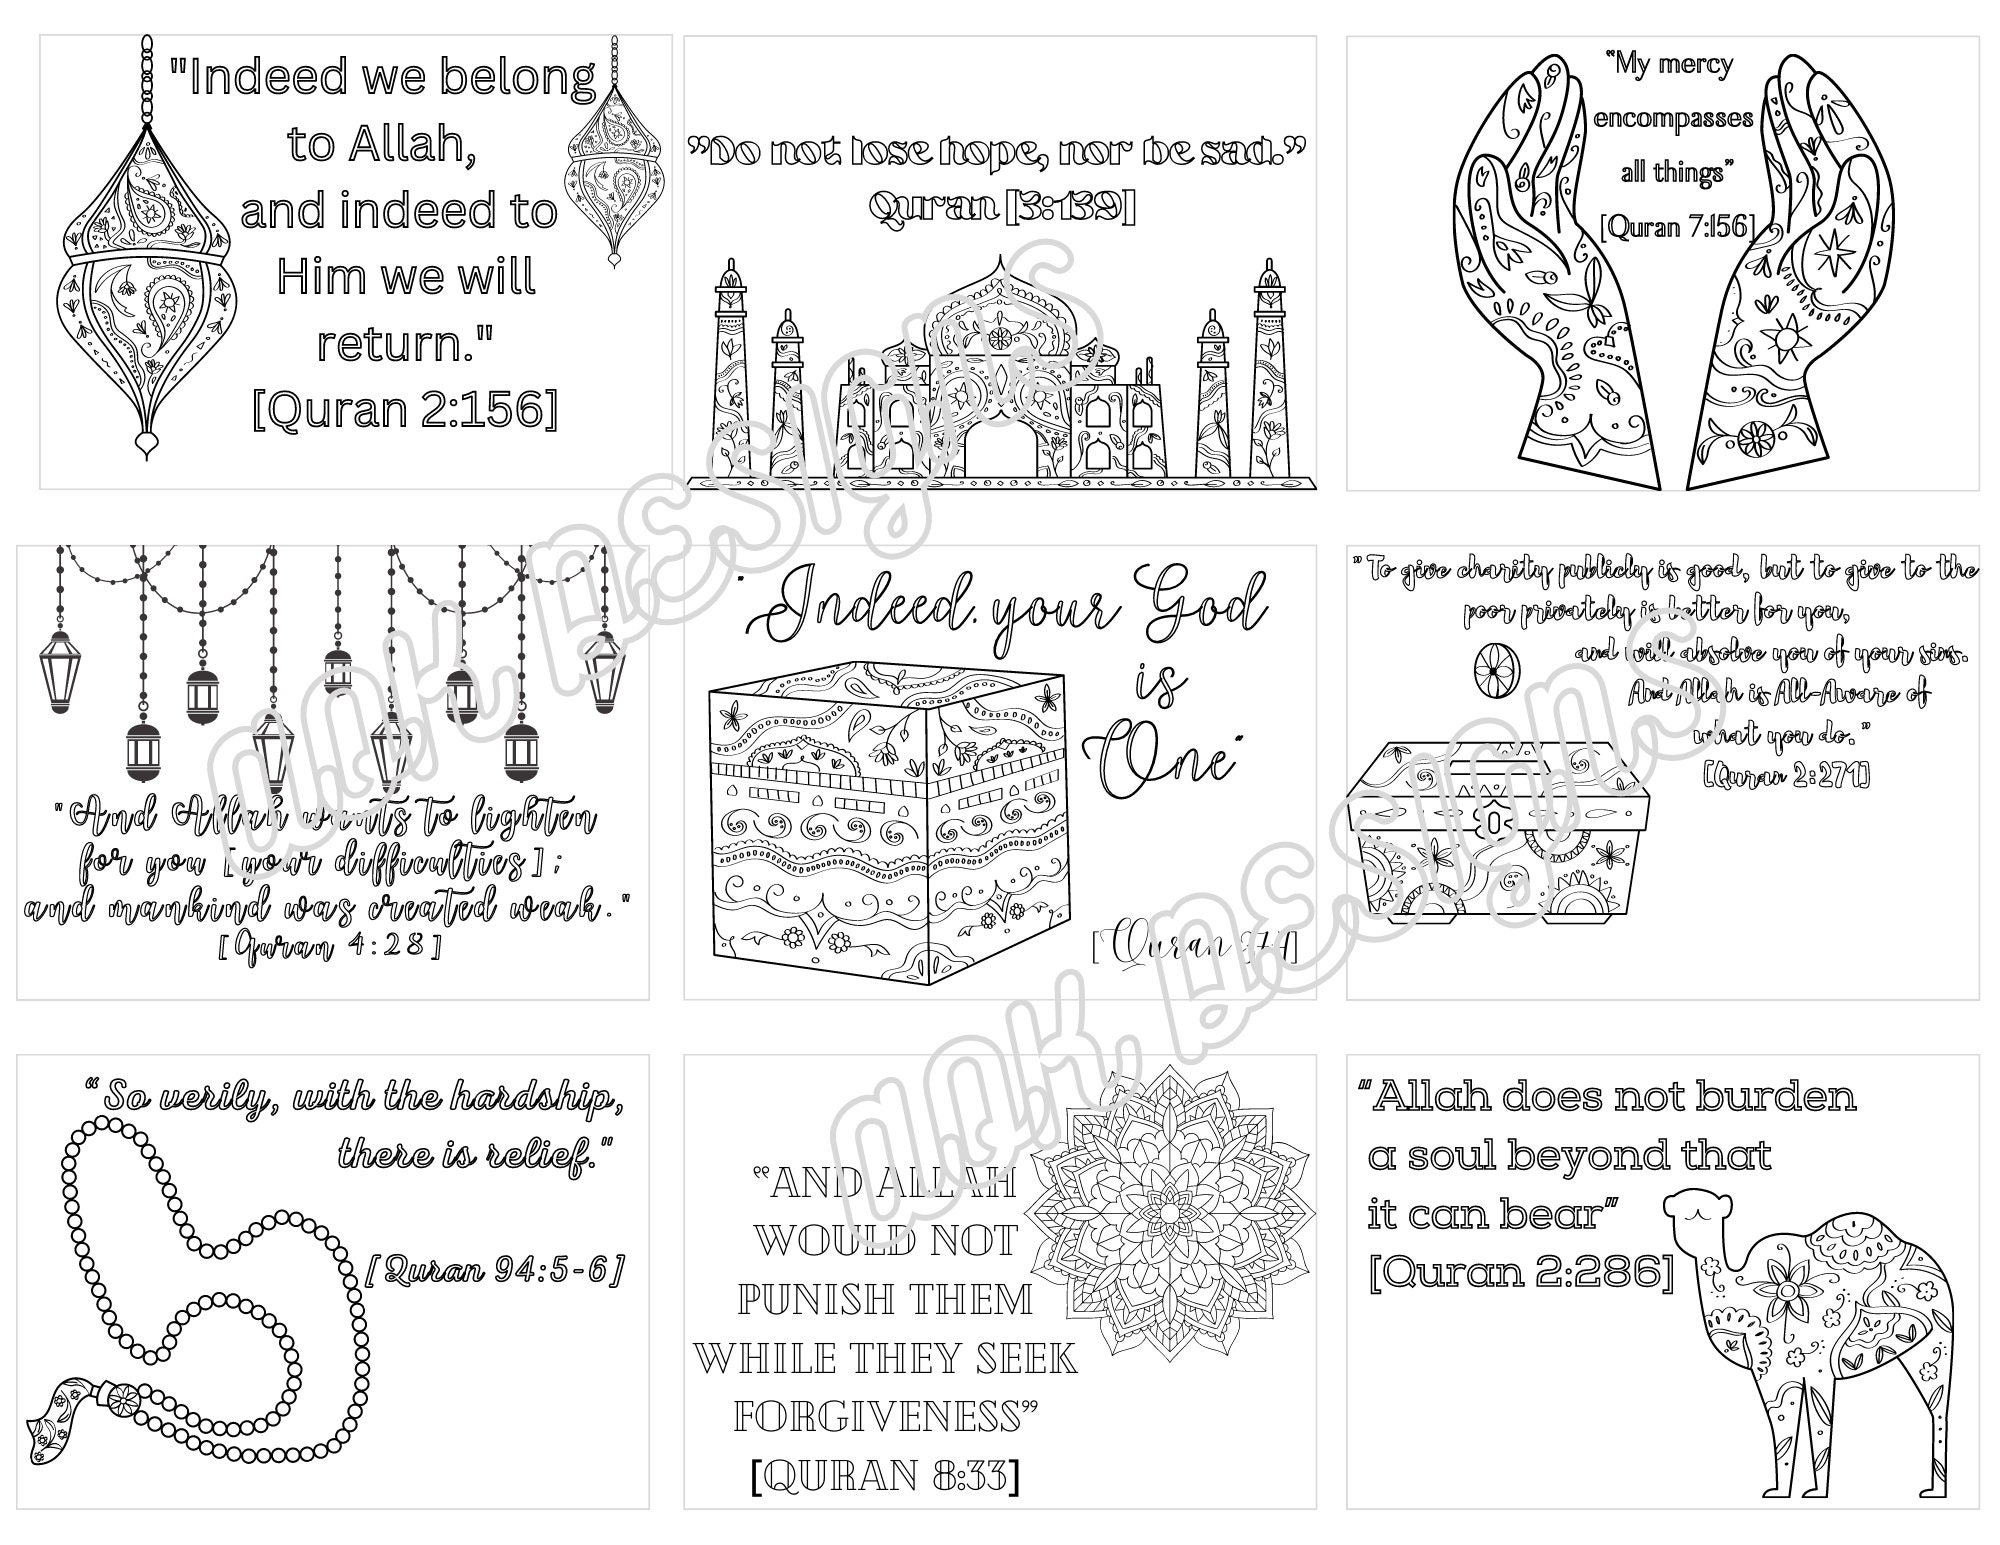 "Indeed we belong
to Allah,
and indeed to
Him we will
return."
[Quran 2:156]
"Do not lose hope, nor be sad."
Quran [3:139]
"My mercy
encompasses
all things"
[Quran 7:156]
"And Allah wants to lighten
for you [your difficulties];
and mankind was created weak."
[Quran 4:28]
"Indeed, your God
is
One"
[Quran 37:4]
"To give charity publicly is good, but to give to the
poor privately is better for you,
and will absolve you of your sins.
And Allah is All-Aware of
what you do."
[Quran 2:271]
"So verily, with the hardship,
there is relief."
[Quran 94:5-6]
"AND ALLAH
WOULD NOT
PUNISH THEM
WHILE THEY SEEK
FORGIVENESS"
[QURAN 8:33]
"Allah does not burden
a soul beyond that
it can bear"
[Quran 2:286]
A.A.K. Designs
A.A.K. Designs